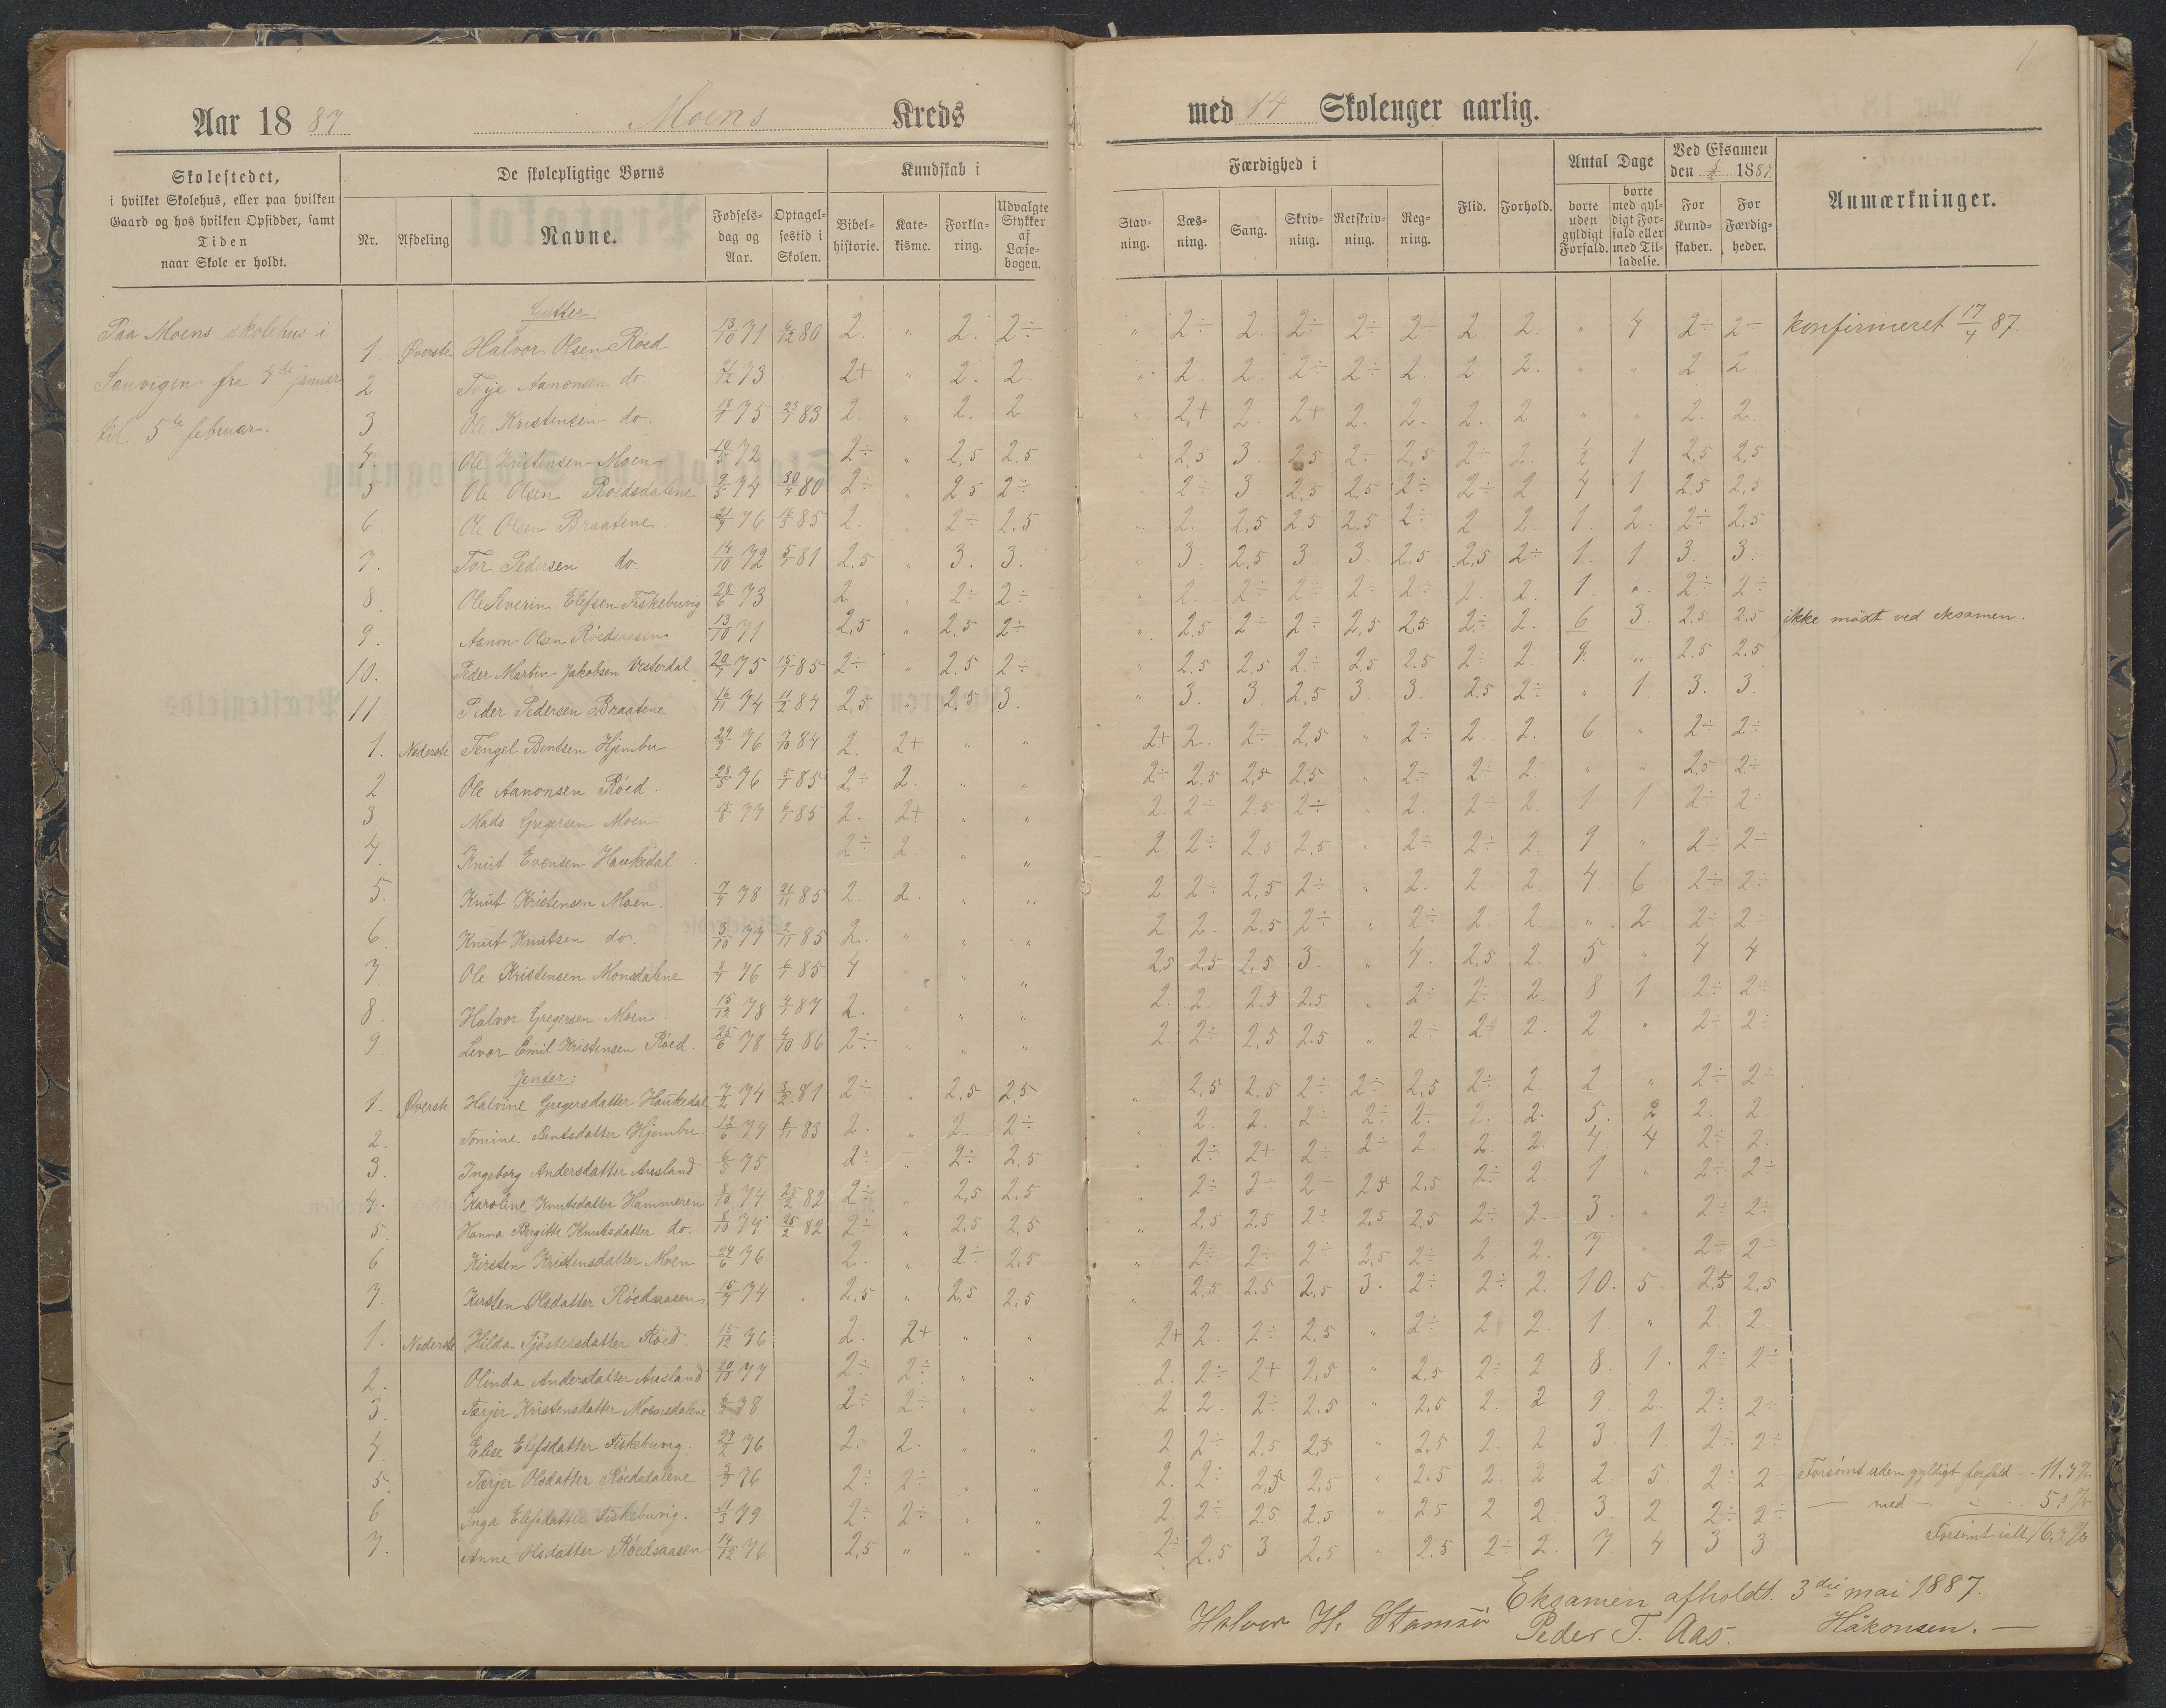 1
Aar 18 87 Moens Kreds
med 14 Skolenger aarlig.
Skolestedet,
i hvilket Skolehus, eller paa hvilken
Gaard og hos hvilken Opsidder, samt
Tiden
naar Skole er holdt.
De skolepligtige Børns
Nr. Afdeling Navne. Fødsels-dag og Aar. Optagel-sestid i Skolen.
Kundskab i
Bibel-historie. Kate-kisme. Forkla-ring. Udvalgte Stykker af Læse-bogen.
Færdighed i
Stav-ning. Læs-ning. Sang. Skriv-ning. Retskriv-ning. Reg-ning.
Flid. Forhold.
Antal Dage
borte uden gyldigt Forfald. borte med gyl-digt For-fald eller med Til-ladelse.
Ved Eksamen
den 1887
For Kund-skaber. For Færdig-heder.
Anmærkninger.
Paa Moens skolehus i
Sauvigen fra 4de januar
til 5te februar.
Gutter
1. Øverste Halvor Olsen Röed 13/10 71 6/12 80 2. " 2. 2÷ " 2÷ 2. 2÷ 2÷ 2÷ 2 2. " 4 2÷ 2÷ konfirmeret 17/4 87.
2 Terje Aanonsen do. 73 2+ " 2. 2. " 2. 2. 2÷ 2÷ 2. 2. 2. " " 2 2
3 Ole Kristensen do. 75 83 2. " 2. 2 " 2+ 2. 2+ 2. 2. 2. 2 " " 2. 2.
4 Ole Kristensen Moen 72 2÷ " 2,5 2.5 " 2,5 3. 2,5 2÷ 2,5 2÷ 2. 1/2 1 2,5 2,5
5 Ole Olsen Roedsdalene 74 80 2÷ " 2 5 2÷ " 2÷ 3 2,5 2,5 2÷ 2÷ 2 4 1 2.5 2,5
6. Ole Olsen Braatene. 76 85 2. " 2÷ 2.5 " 2. 2,5 2,5 2,5 2÷ 2 2. 1. 2. 2÷ 2,5
7. Tor Pedersen do. 14/10 72 81 2.5 " 3. 3. " 3. 2,5 3 3. 2,5 2,5 2÷ 1. 1 3. 3.
8. Ole Severin Elefsen Fiskebuvig 28/6 73 2 " 2÷ 2÷ " 2. 2÷ 2÷ 2÷ 2÷ 2. 2. 1. " 2÷ 2÷
9. Aanon Olsen Röedsaasen 13/10 71 2,5 " 2,5 2÷ " 2.5 2÷ 2÷ 2,5 2,5 2÷ 2. 6 3. 2.5 2.5 ikke mödt ved eksamen.
10. Peder Martin Jakobsen Vesterdal 75 85 2÷ " 2.5 2÷ " 2.5 2,5 2÷ 2,5 2.5 2÷ 2. 9. " 2.5 2.5
11 Peder Pedersen Braatene 16/11 74 11/2 84 2,5 " 2,5 3. " 3. 3. 2,5 3. 3. 2,5 2÷ " 1. 3. 3.
1. Nederste Tengel Bentsen Hjembu 76 84 2. 2+ " " 2+ 2. 2÷ 2,5 " 2÷ 2. 2. 6. " 2÷ 2÷
2 Ole Aanonsen Röed. 28/5 76 85 2÷ 2. " " 2÷ 2.5 2,5 2.5 " 2÷ 2÷ 2. " " 2.5 2÷
3. Mads Gregersen Moen 77 85 2. 2+ " " 2. 2÷ 2.5 2÷ " 2. 2÷ 2. 1 1 2÷ 2÷
4. Knut Evensen Haukedal 2÷ 2. " " 2. 2÷ 2.5 2.5 " 2÷ 2÷ 2. 9 " 2÷ 2÷
5. Knut Kristensen Moen. 78 21/11 85 2. 2. " " 2. 2÷ 2,5 2÷ " 2. 2 2 4. 6 2÷ 2÷
6. Knut Knutsen do. 3/10 77 2/11 85 2. " " " 2. 2. 2.5 2÷ " 2÷ 2. 2. " 2 2÷ 2÷
7. Ole Kristensen Monsdalene 76 85 4 " " 2,5 2.5 2,5 3. " 4. 2,5 2. 5 " 4 4
8. Halvor Gregersen Moen 15/12 78 87 2. " " " 2. 2. 2.5 2.5 " 2÷ 2÷ 2. 8 1 2÷ 2÷
9 Levor Emil Kristensen Röed. 25/6 78 4/10 86 2÷ " " " 2. 2÷ 2,5 2.5 " 2÷ 2÷ 2. 2 " 2÷ 2÷
Jenter:
1. Øverste Halvine Gregersdatter Haukedal 74 81 2÷ " 2,5 2,5 " 2,5 2,5 2÷ 2÷ 2,5 2÷ 2. 2 " 2÷ 2÷
2. Tomine Bentsdatter Hjembu. 74 6/11 83 2. " 2. 2÷ " 2. 2. 2÷ 2÷ 2÷ 2. 2. 5. 2 2. 2
3. Ingeborg Andersdatter Ausland 6/5 75 2÷ " 2÷ 2,5 " 2÷ 2+ 2÷ 2÷ 2 2. 2. 4 4 2÷ 2.
4. Karoline Knutsdatter Hammeren 8/10 74 25/2 82 2÷ " 2,5 2.5 " 2÷ 2÷ 2÷ 2,5 2,5 2÷ 2. 1 " 2÷ 2÷
5. Hanna Bergitte Knutsdatter do. 8/10 74 25/2 82 2÷ " 2.5 2,5 " 2,5 2.5 2÷ 2,5 2,5 2÷ 2. 3. " 2÷ 2÷
6 Kirsten Kristensdatter Moen 76 2. " 2÷ 2,5 " 2÷ 2÷ 2÷ 2,5 2÷ 2 2. 7 " 2÷ 2÷
7. Kirsten Olsdatter Röedsaasen 74 2,5 " 2,5 2,5 " 2.5 2.5 2,5 3. 2÷ 2÷ 2. 10. 5. 2,5 2,5
1. Nederste Hilda Tjöstelsdatter Röed. 15/12 76 2. 2+ " " 2+ 2. 2÷ 2,5 " 2÷ 2 2. 1 " 2. 2.
2. Olinda Andersdatter Ausland 20/10 77 2÷ 2÷ " " 2. 2÷ 2+ 2,5 " 2,5 2÷ 2 8. 1. 2÷ 2÷
3. Tærjer Kristensdatter Monsdalene 78 2÷ 2÷ " " 2. 2. 2÷ 2.5 " 2,5 2. 2 9. 2. 2÷ 2÷
4. Elise Elefsdatter Fiskebuvig. 76 2. 2. " " 2 2÷ 2,5 2,5 " 2,5 2. 2 3. 1. 2÷ 2÷
5. Tærjer Olsdatter Röedsdalene 76 2÷ 2÷ " " 2. 2÷ 2,5 2,5 " 2.5 2. 2 2. 5. 2÷ 2÷ Forsömt uden gyldigt forfald
6 Inga Elefsdatter Fiskebuvig. 79 2÷ 2÷ " " 2. 2÷ 2.5 2.5 " 2 5 2 2. 3. 2 2÷ 2÷ — med —
7. Anne Olsdatter Röedsaasen 14/12 76 2,5 " " " 2÷ 2,5 3 2,5 " 2.5 2÷ 2. 7. 4 3 3 Forsömt ialt
Eksamen afholdt 3die mai 1887.
Halvor H. Stamsö Peder T. Aas. Håkonsen. —